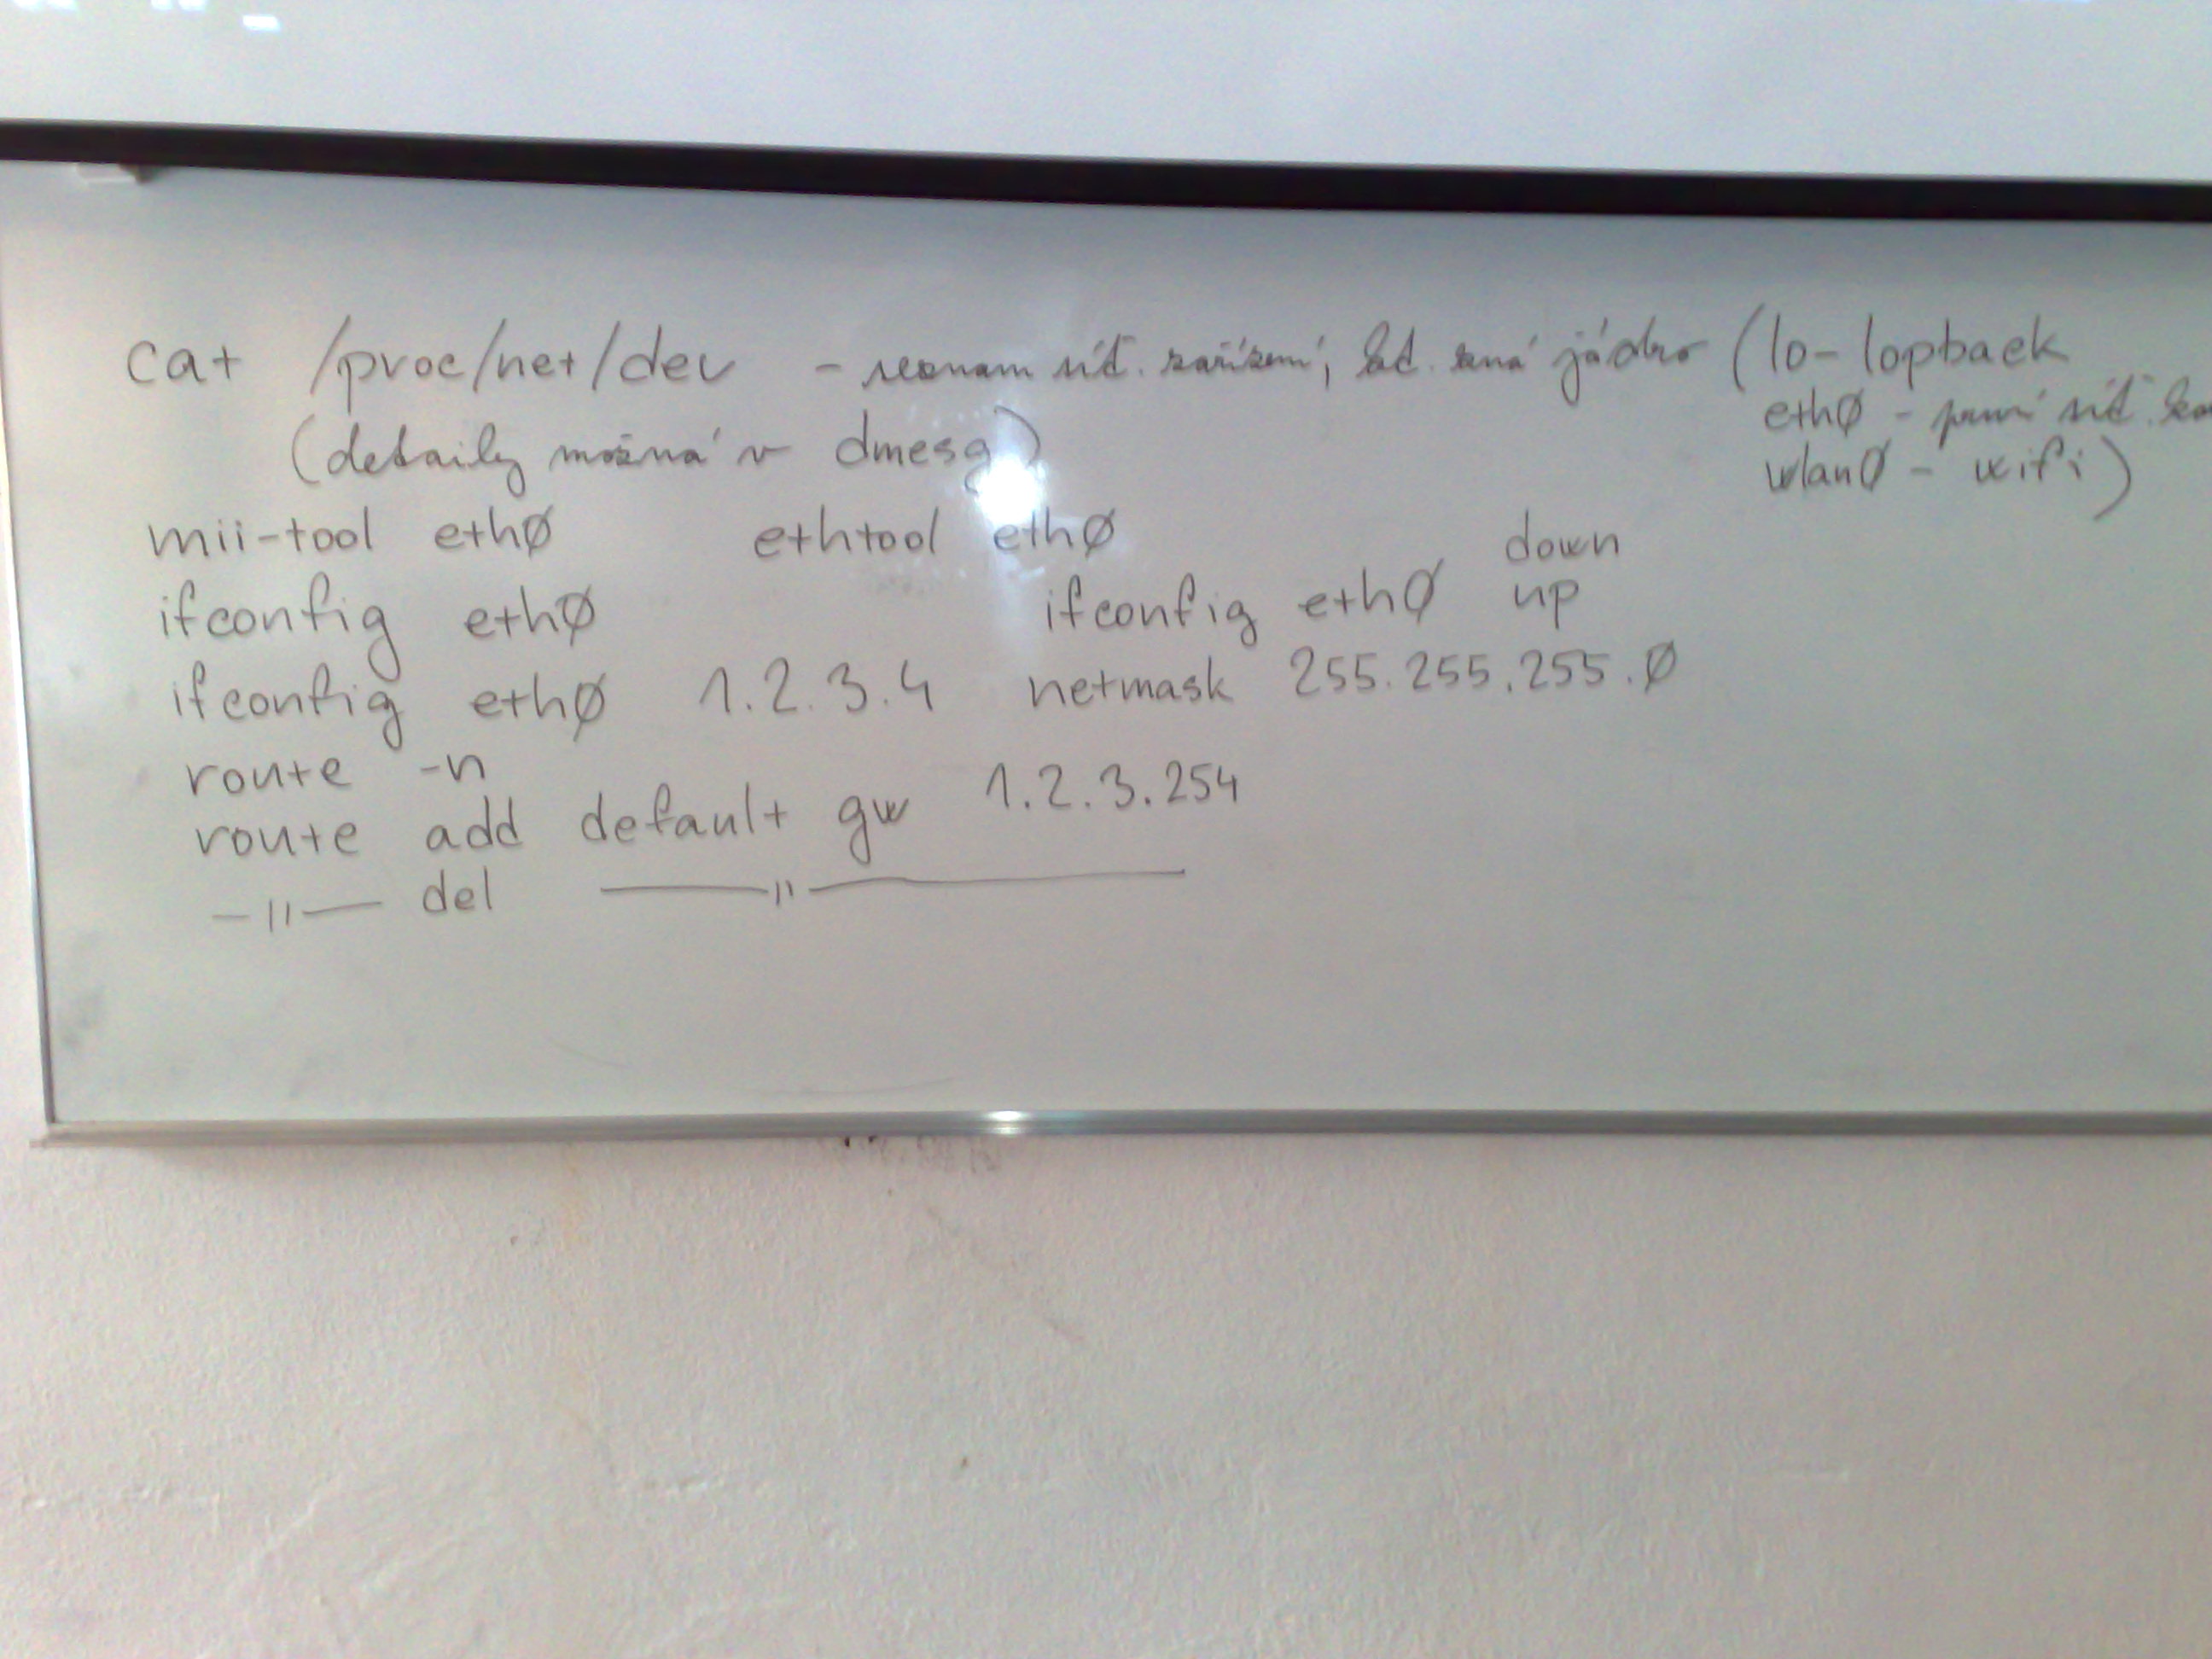 cat /proc/net/dev - seznam síť. zařízení, kt. zná jádro (lo - lopback
eth0 - první síť.
(detaily možná v dmesg)
wlan0 - wifi)
mii-tool eth0 ethtool eth0
down
ifconfig eth0 ifconfig eth0 up
ifconfig eth0 1.2.3.4 netmask 255.255.255.0
route -n
route add default gw 1.2.3.254
-||- del -||-